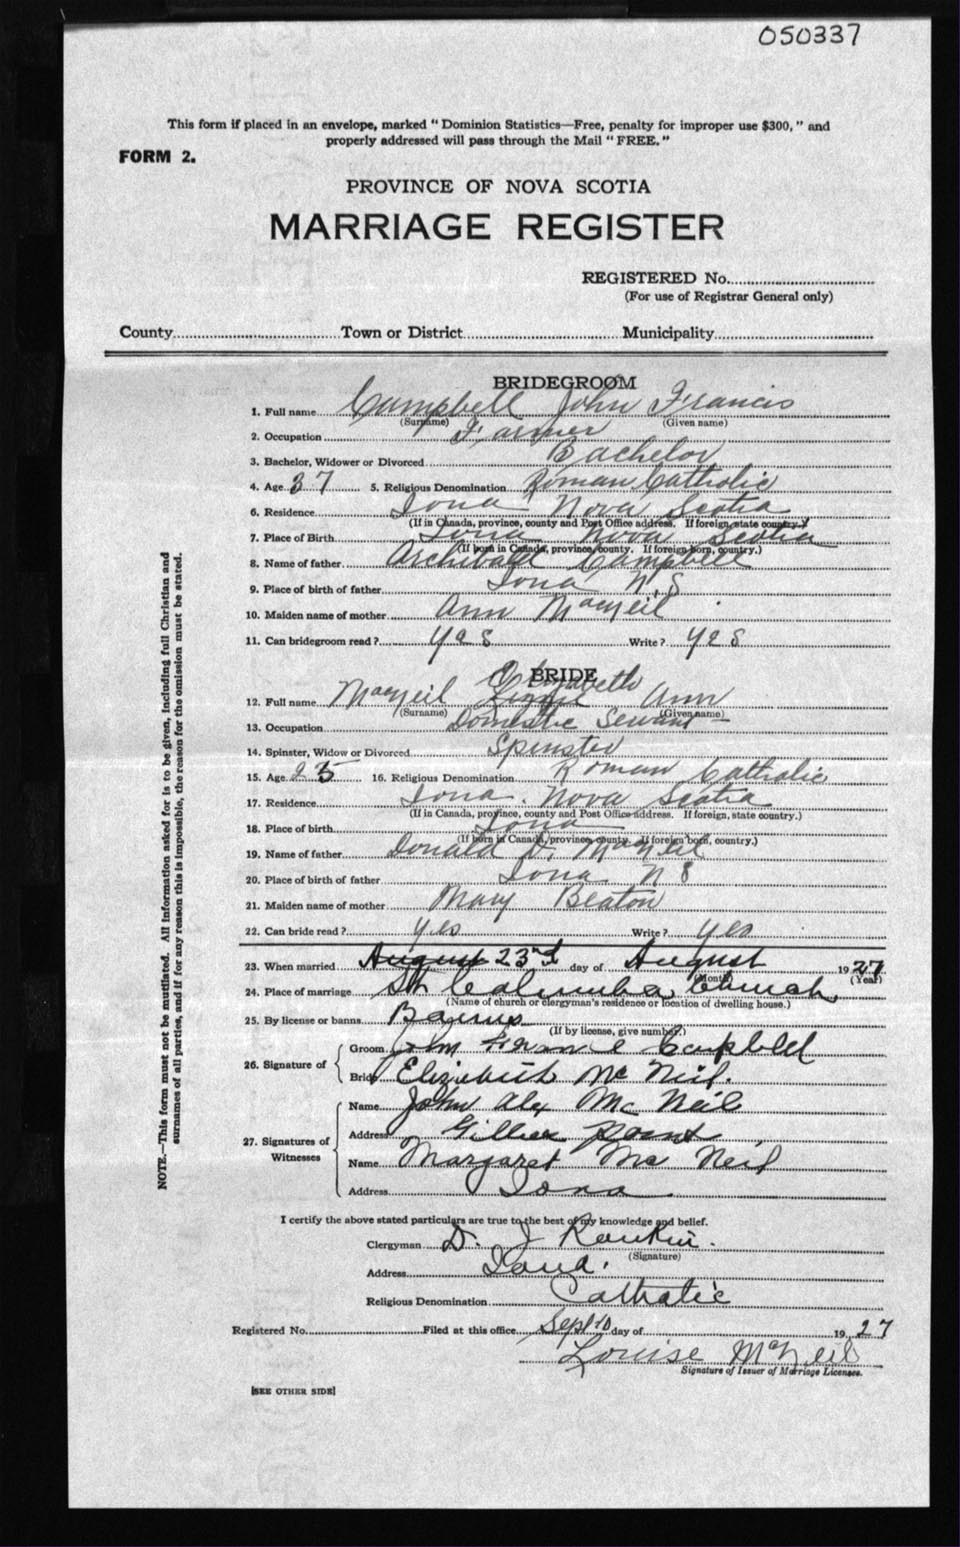 050337
This form if placed in an envelope, marked "Dominion Statistics—Free, penalty for improper use $300," and
properly addressed will pass through the Mail "FREE."
FORM 2.
PROVINCE OF NOVA SCOTIA
MARRIAGE REGISTER
REGISTERED No.
(For use of Registrar General only)
County Town or District Municipality
BRIDEGROOM
1. Full name Campbell John Francis
(Surname) (Given name)
2. Occupation Farmer
3. Bachelor, Widower or Divorced Bachelor
4. Age 37 5. Religious Denomination Roman Catholic
6. Residence Iona Nova Scotia
(If in Canada, province, county and Post Office address. If foreign, state country.)
7. Place of Birth Iona Nova Scotia
(If born in Canada, province, county. If foreign born, country.)
8. Name of father Archibald Campbell
9. Place of birth of father Iona N.S
10. Maiden name of mother Ann MacNeil
11. Can bridegroom read? Yes Write? Yes
BRIDE
Elizabeth
12. Full name MacNeil Lizzie Ann
(Surname) (Given name)
13. Occupation Domestic Servant
14. Spinster, Widow or Divorced Spinster
15. Age 25 16. Religious Denomination Roman Catholic
17. Residence Iona. Nova Scotia
(If in Canada, province, county and Post Office address. If foreign, state country.)
18. Place of birth Iona
(If born in Canada, province, county. If foreign born, country.)
19. Name of father Donald D. MacNeil
20. Place of birth of father Iona N S
21. Maiden name of mother Mary Beaton
22. Can bride read? Yes Write? Yes
23. When married August 23nd day of August 1927
(Month) (Year)
24. Place of marriage St. Columba Church
(Name of church or clergyman's residence or location of dwelling house.)
25. By license or banns Banns
(If by license, give number.)
26. Signature of
Groom John Campbell
Bride Elizabeth Mc Neil.
27. Signatures of Witnesses
Name John Alex Mc Neil
Address Gillies Point
Name Margaret Mc Neil
Address Iona
I certify the above stated particulars are true to the best of my knowledge and belief.
Clergyman D. J Rankin.
(Signature)
Address Iona.
Religious Denomination Catholic
Registered No. Filed at this office Sept 10 day of 1927
Louise McNeil
Signature of Issuer of Marriage Licenses.
[SEE OTHER SIDE]
NOTE.—This form must not be mutilated. All information asked for is to be given, including full Christian and
surnames of all parties, and if for any reason this is impossible, the reason for the omission must be stated.